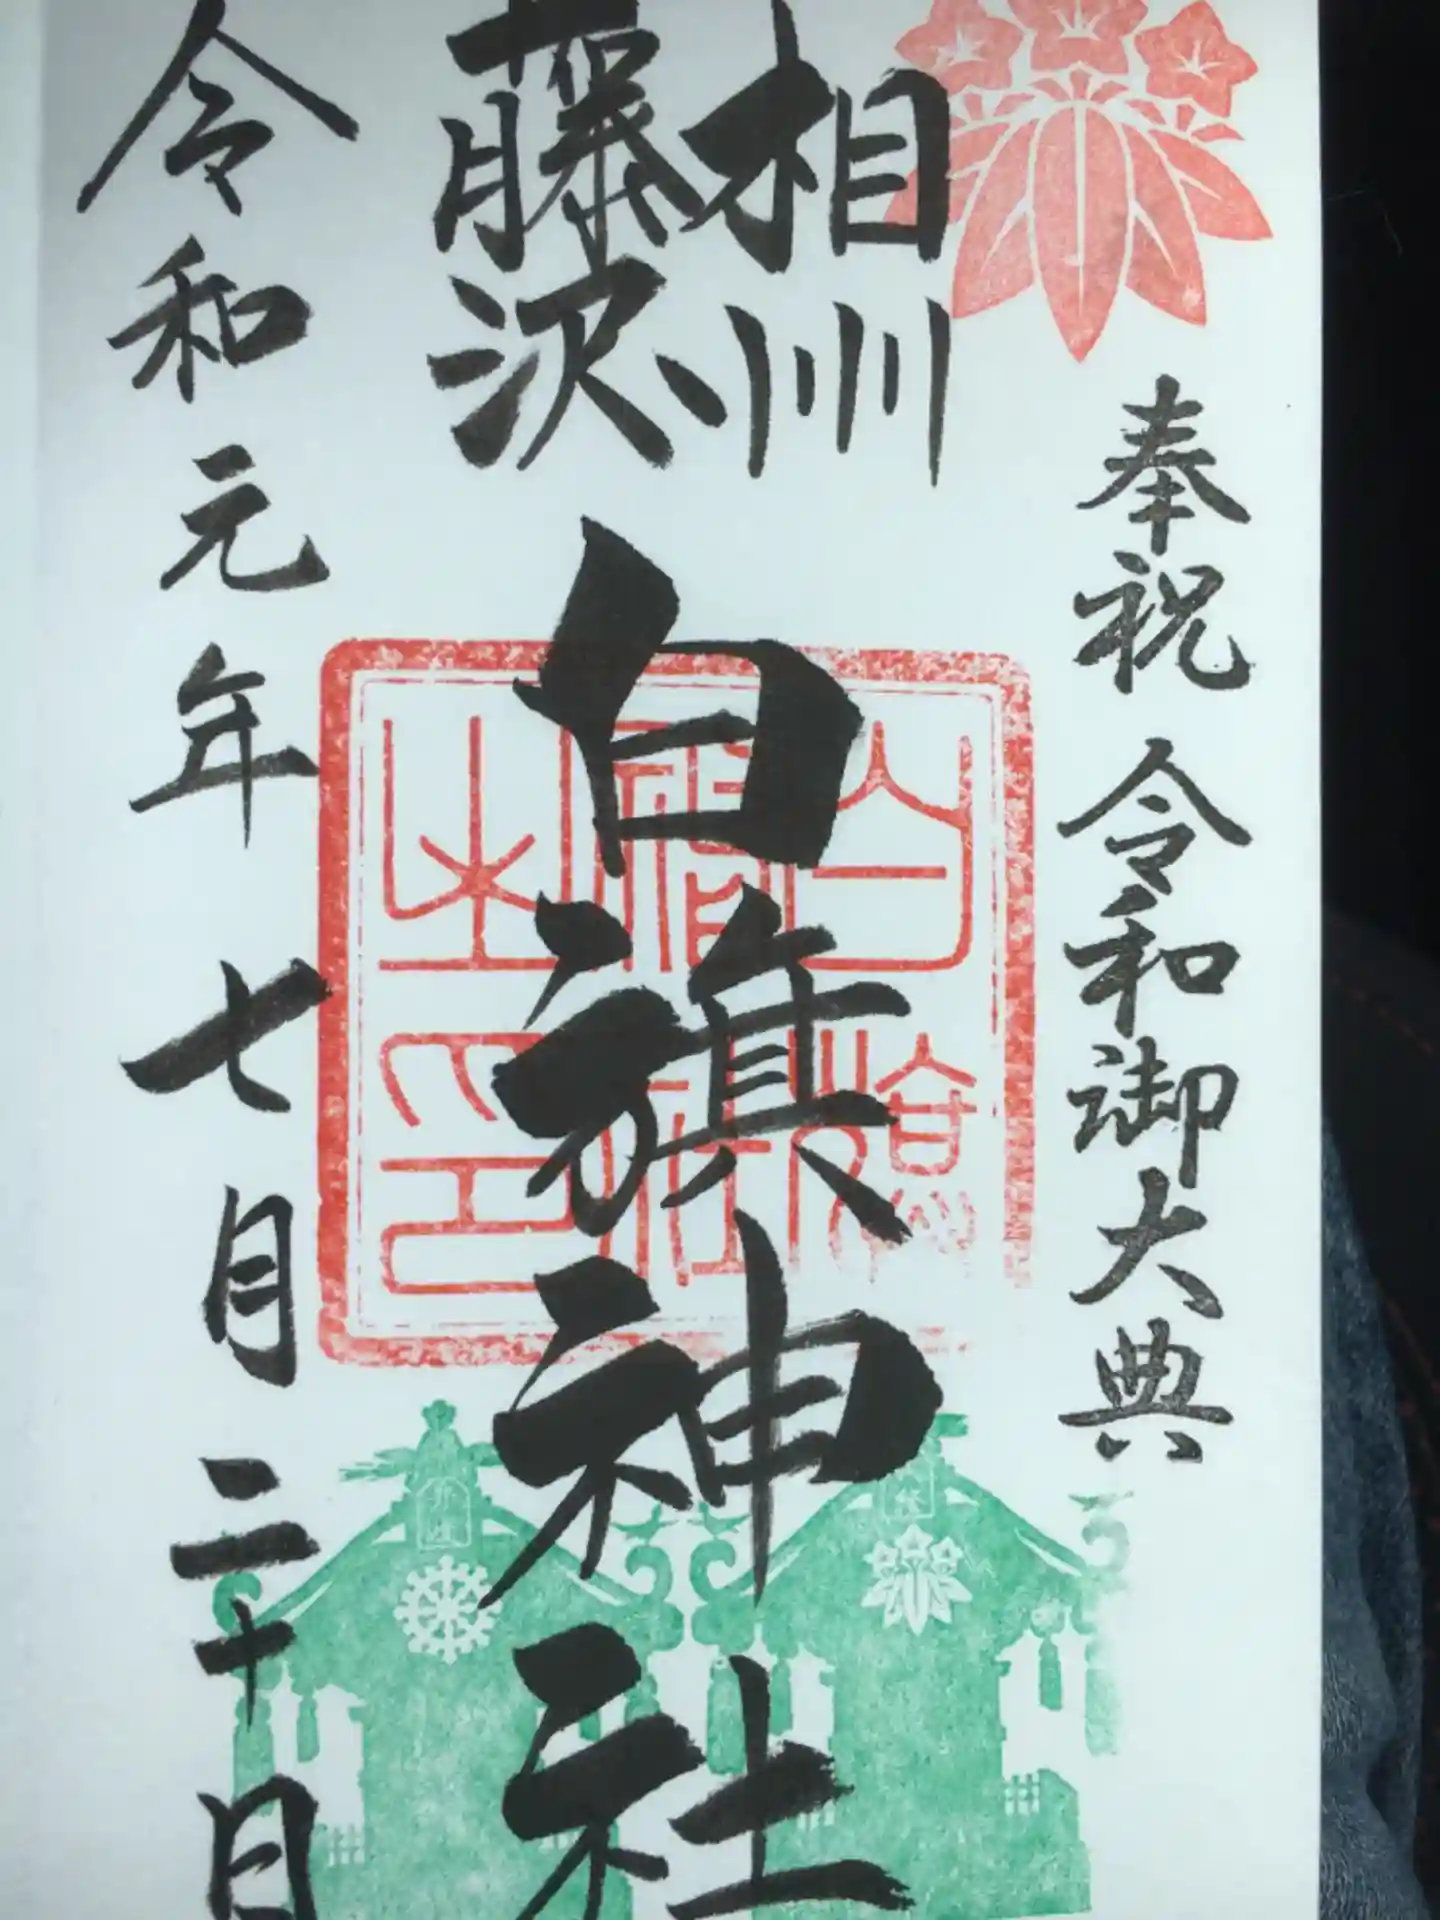 奉祝 令和御大典
相州
藤沢
白旗神社
令和元年七月二十日